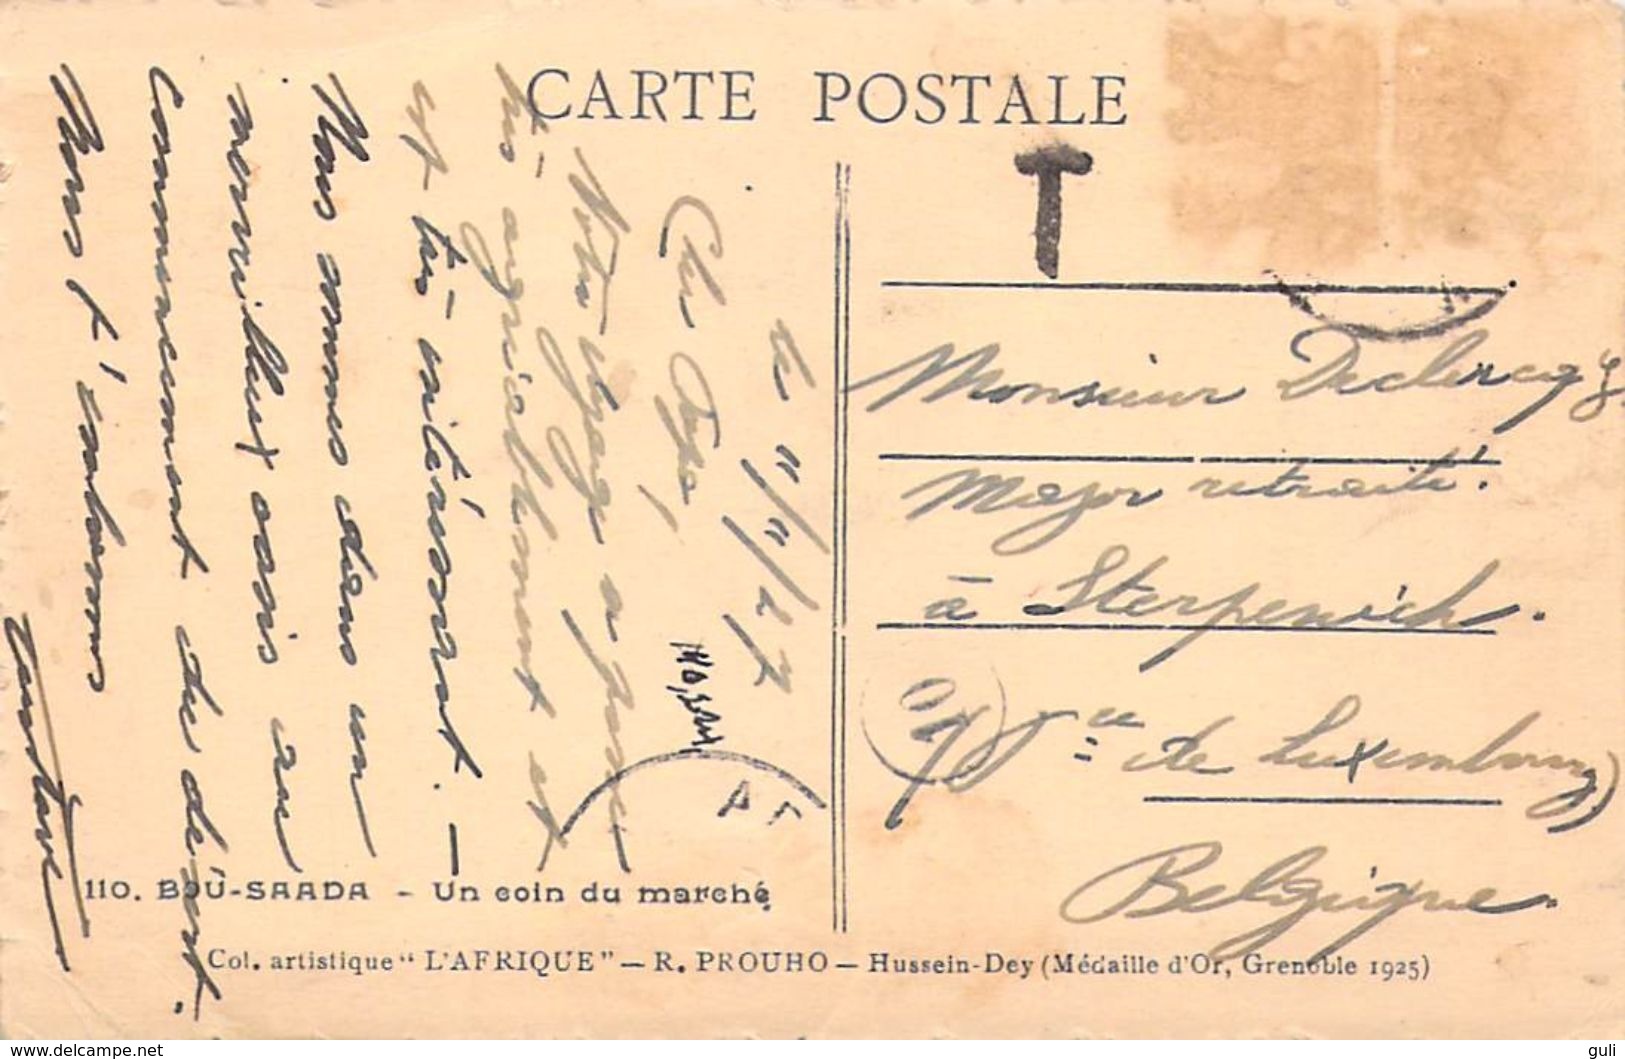 CARTE POSTALE
T
le 11/11/27
Cher Papa,
Votre voyage a passé
très agréablement et
est très intéressant. —
Nous sommes dans un
merveilleux oasis au
commencement du désert.
Nous t'embrassons
Monsieur Declercq
Major retraité.
à Sterpenich.
de Luxembourg)
Belgique.
110. BOU-SAADA - Un coin du marché
Col. artistique "L'AFRIQUE" — R. PROUHO — Hussein-Dey (Médaille d'Or, Grenoble 1925)
www.delcampe.net
guli